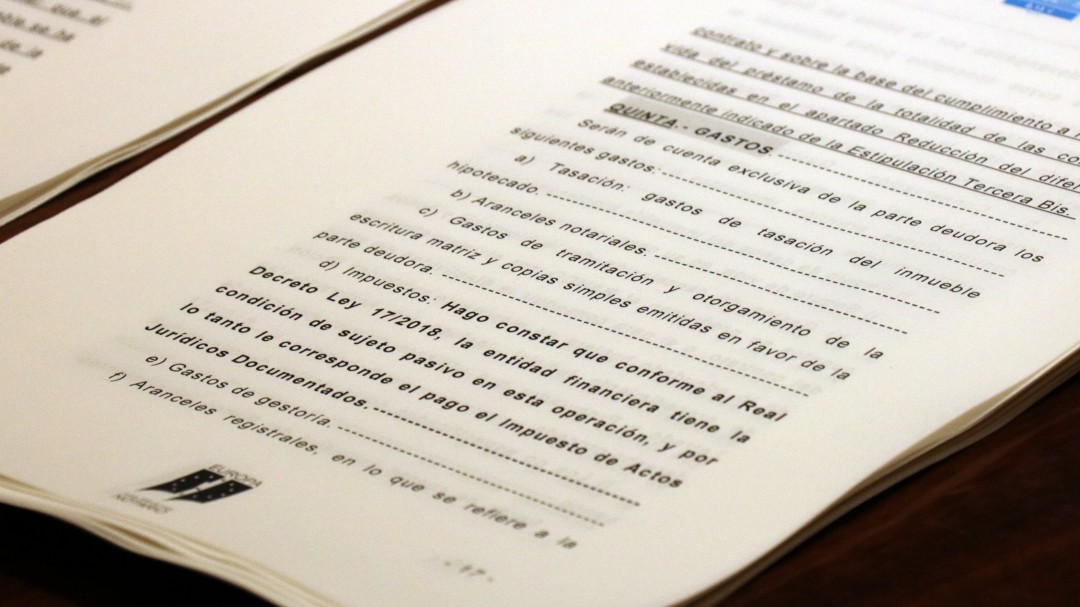 contrato y sobre la base del cumplimiento a
vida del préstamo de la totalidad de las
establecidas en el apartado Reducción del
anteriormente indicado de la Estipulación Tercera Bis.
QUINTA.- GASTOS.
Serán de cuenta exclusiva de la parte deudora los
siguientes gastos:
a) Tasación: gastos de tasación del inmueble
hipotecado.
b) Aranceles notariales.
c) Gastos de tramitación y otorgamiento de la
escritura matriz y copias simples emitidas en favor de la
parte deudora.
d) Impuestos. Hago constar que conforme al Real
Decreto Ley 17/2018, la entidad financiera tiene la
condición de sujeto pasivo en esta operación, y por
lo tanto le corresponde el pago el Impuesto de Actos
Jurídicos Documentados.
e) Gastos de gestoría.
f) Aranceles registrales, en lo que se refiere a la
EUROPA
NOTARIOS
- 17 -